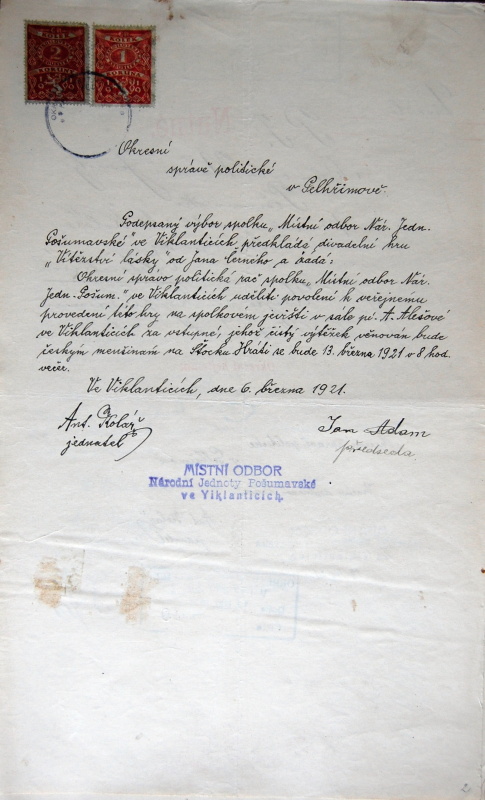 KOLEK
2
KORUNA
KOLEK
1
KORUNA
Okresní
správě politické
v Pelhřimově.
Podepsaný výbor spolku „Místní odbor Nár. Jedn.
Pošumavské" ve Viklanticích předkládá divadelní hru
„Vítězství lásky" od Jana Černého a žádá;
Okresní správo politická rač spolku „Místní odbor Nár.
Jedn. Pošum." ve Viklanticích uděliti povolení k veřejnému
provedení této hry na spolkovém jevišti v sále pí. A. Alešové
ve Viklanticích za vstupné, jehož čistý výtěžek věnován bude
českým menšinám na Štocku. Hráti se bude 13. března 1921 v 8 hod.
večer.
Ve Viklanticích, dne 6. března 1921.
Ant. Kolář
jednatel
Jan Adam
předseda.
MÍSTNÍ ODBOR
Národní Jednoty Pošumavské
ve Viklanticích.
2